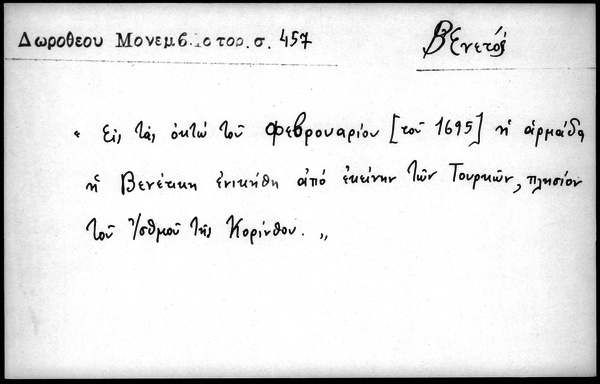 Δωροθεου Μονεμβ. ιστορ. σ. 457
Βενετός
" Εις τας οκτώ του Φεβρουαρίου [του 1695] η αρμάδα
η Βενέτικη ενικήθη από εκείνην των Τουρκών, πλησίον
του Ισθμού της Κορίνθου. „